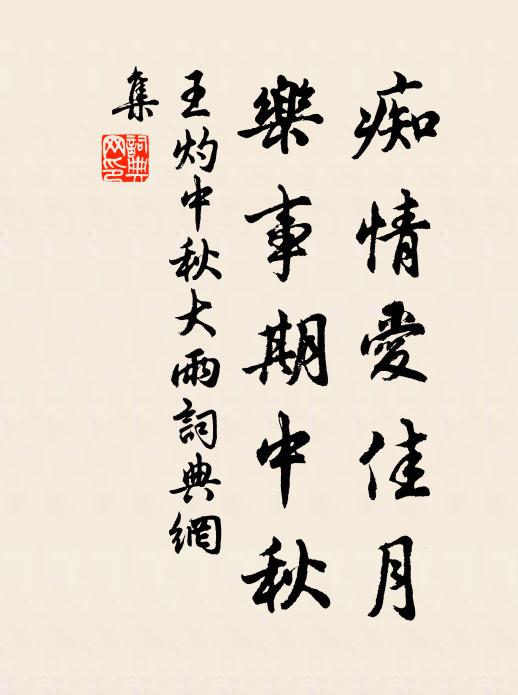 痴情愛佳月
樂事期中秋
王灼中秋大雨詞典網
集
詞典
網印